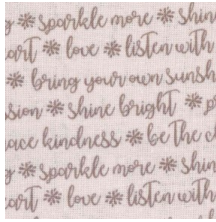 y ✻ sparkle more ✻ shin
eart ✻ love ✻ listen with
✻ bring your own sunsh
ssion ✻ shine bright ✻ p
race kindness ✻ be the c
y ✻ sparkle more ✻ shin
eart ✻ love ✻ listen with